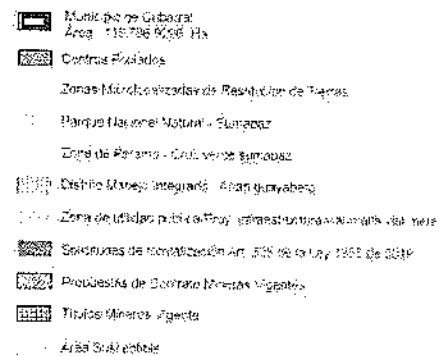 Municipio de Cubarral
Área
Centros Poblados
Zonas Microfocalizadas de Restitución de Tierras
Parque Nacional Natural - Sumapaz
Zona de Paramo - Cruz verde sumapaz
Distrito Manejo Integrado - Ariari guayabero
Zona de utilidad publica infraestructura
Solicitudes de formalización Art. 325 de la Ley 1955 de 2019
Propuestas de Contrato Mineras Vigentes
Titulos Mineros Vigente
Área Susceptible